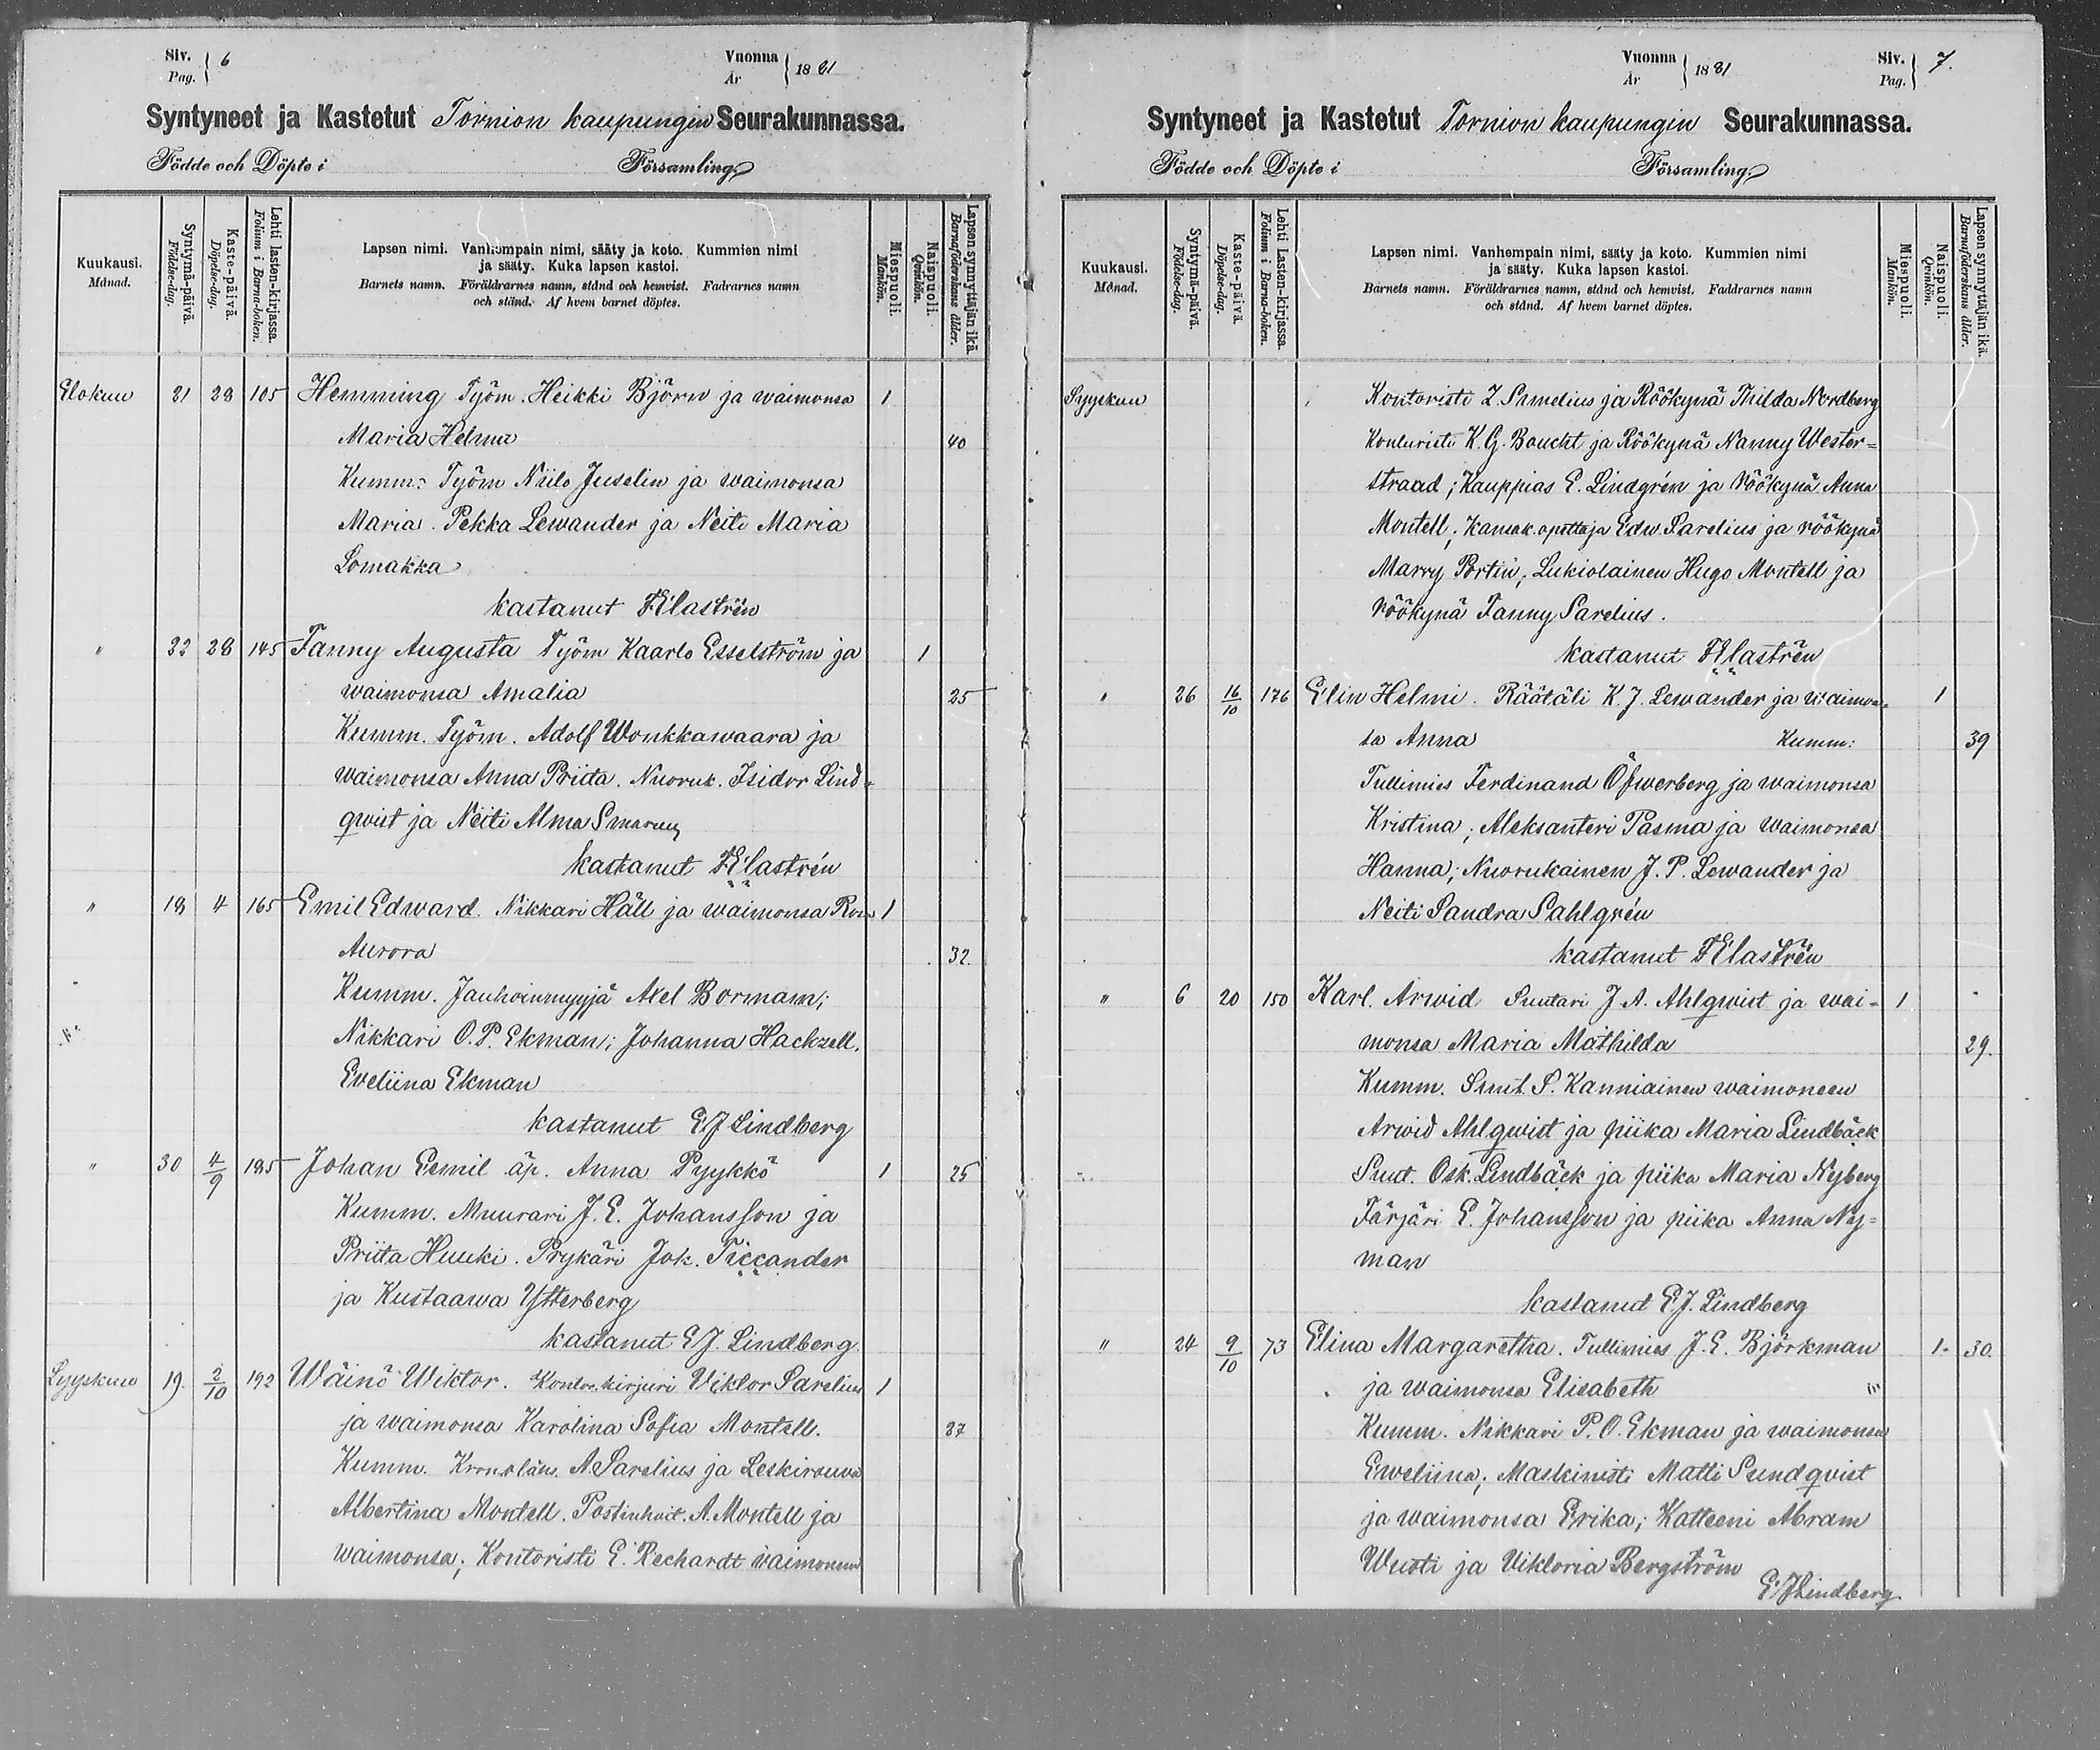 Siv. Pag. 6
Vuonna År 1881
Syntyneet ja Kastetut Tornion kaupungin Seurakunnassa.
Födde och Döpte i Församling
Kuukausi. Månad.
Syntymä-päivä. Födelse-dag.
Kaste-päivä. Döpelse-dag.
Lehti lasten-kirjassa. Folium i Barna-boken.
Lapsen nimi. Vanhempain nimi, sääty ja koto. Kummien nimi
ja sääty. Kuka lapsen kastoi.
Barnets namn. Föräldrarnes namn, stånd och hemvist. Fadrarnes namn
och stånd. Af hvem barnet döptes.
Miespuoli. Mankön.
Naispuoli. Qvinkön.
Lapsen synnyttäjän ikä. Barnaföderskans ålder.
Elokuu 21 28 105 Hemming Työm. Heikki Björn ja waimonsa 1
Maria Helena 40
Kumm: Työm Niilo Juselin ja waimonsa
Maria. Pekka Lewander ja Neiti Maria
Lomakka
kastanut F E Clastrén
" 22 28 145 Fanny Augusta Työm Kaarlo Esselström ja 1
waimonsa Amalia 25
Kumm. Työm. Adolf Wonkkawaara ja
waimonsa Anna Priita. Nuoruk. Isidor Lind=
qwist ja Neiti Alma
kastanut F E Clastrén
" 18 4 165 Emil Edward. Nikkari Häll ja waimonsa 1
Aurora 32.
Kumm. Axel Bormann;
Nikkari O. P. Ekman; Johanna Hackzell.
Eveliina Ekman
kastanut E J Lindberg
" 30 4/9 185 Johan Eemil äp. Anna Pyykkö 1 25
Kumm. Muurari J. E. Johansson ja
Priita Huuki. Prykäri Joh. Ticcander
ja Kustaawa Ytterberg
kastanut E J. Lindberg
Syyskuu 19. 2/10 192 Wäinö Wiktor. Kontor.kirjuri Viktor Sarelius 1
ja waimonsa Karolina Sofia Montell. 27
Kumm. Kronoläns. A Sarelius ja Leskirouva
Albertina Montell. Postinhoit. A. Montell ja
waimonsa; Kontoristi E. Rechardt waimoneen
Vuonna År 1881
Siv. Pag. 7.
Syntyneet ja Kastetut Tornion kaupungin Seurakunnassa.
Födde och Döpte i Församling
Kuukausi. Månad.
Syntymä-päivä. Födelse-dag.
Kaste-päivä. Döpelse-dag.
Lehti Lasten-kirjassa. Folium i Barna-boken.
Lapsen nimi. Vanhempain nimi, sääty ja koto. Kummien nimi
ja sääty. Kuka lapsen kastoi.
Barnets namn. Föräldrarnes namn, stånd och hemvist. Faddrarnes namn
och stånd. Af hvem barnet döptes.
Miespuoli. Mankön.
Naispuoli. Qvinkön.
Lapsen synnyttäjän ikä. Barnaföderskans ålder.
Syyskuu Kontoristi Z. ja Röökynä Thilda Nordberg
Kontoristi K. G. Boucht ja Röökynä Nanny Wester=
straad; Kauppias E. Lindgrén ja röökynä Anna
Montell; Kansak. opettaja Edw Sarelius ja röökynä
Marry Portin; Lukiolainen Hugo Montell ja
röökynä Fanny Sarelius.
kastanut F E Clastrén
" 26 16/10 176 Elin Helmi. Räätäli K. J. Lewander ja waimon= 1
sa Anna Kumm: 39
Tullimies Ferdinand Öfwerberg ja waimonsa
Kristina; Aleksanteri Pasma ja waimonsa
Hanna; Nuorukainen J. P. Lewander ja
Neiti Sandra Sahlgrén
kastanut F E Clastrén
" 6 20 150 Karl. Arwid Suutari J A. Ahlqwist ja wai= 1
monsa Maria Mathilda 29.
Kumm. Suut. P. Kanniainen waimoneen
Arwid Ahlqwist ja piika Maria Lindbäck
Suut. Osk. Lindbäck ja piika Maria Nyberg
Färjäri E. Johansson ja piika Anna Ny=
man
kastanut E. J. Lindberg
" 24 9/10 73 Elina Margaretha. Tullimies J. E. Björkman 1. 30.
ja waimonsa Elisabeth
Kumm. Nikkari P. O. Ekman ja waimonsa
Eweliina; Maskinisti Matti Sundqvist
ja waimonsa Erika; Katteeni Abram
Wuoti ja Viktoria Bergström
E J Lindberg